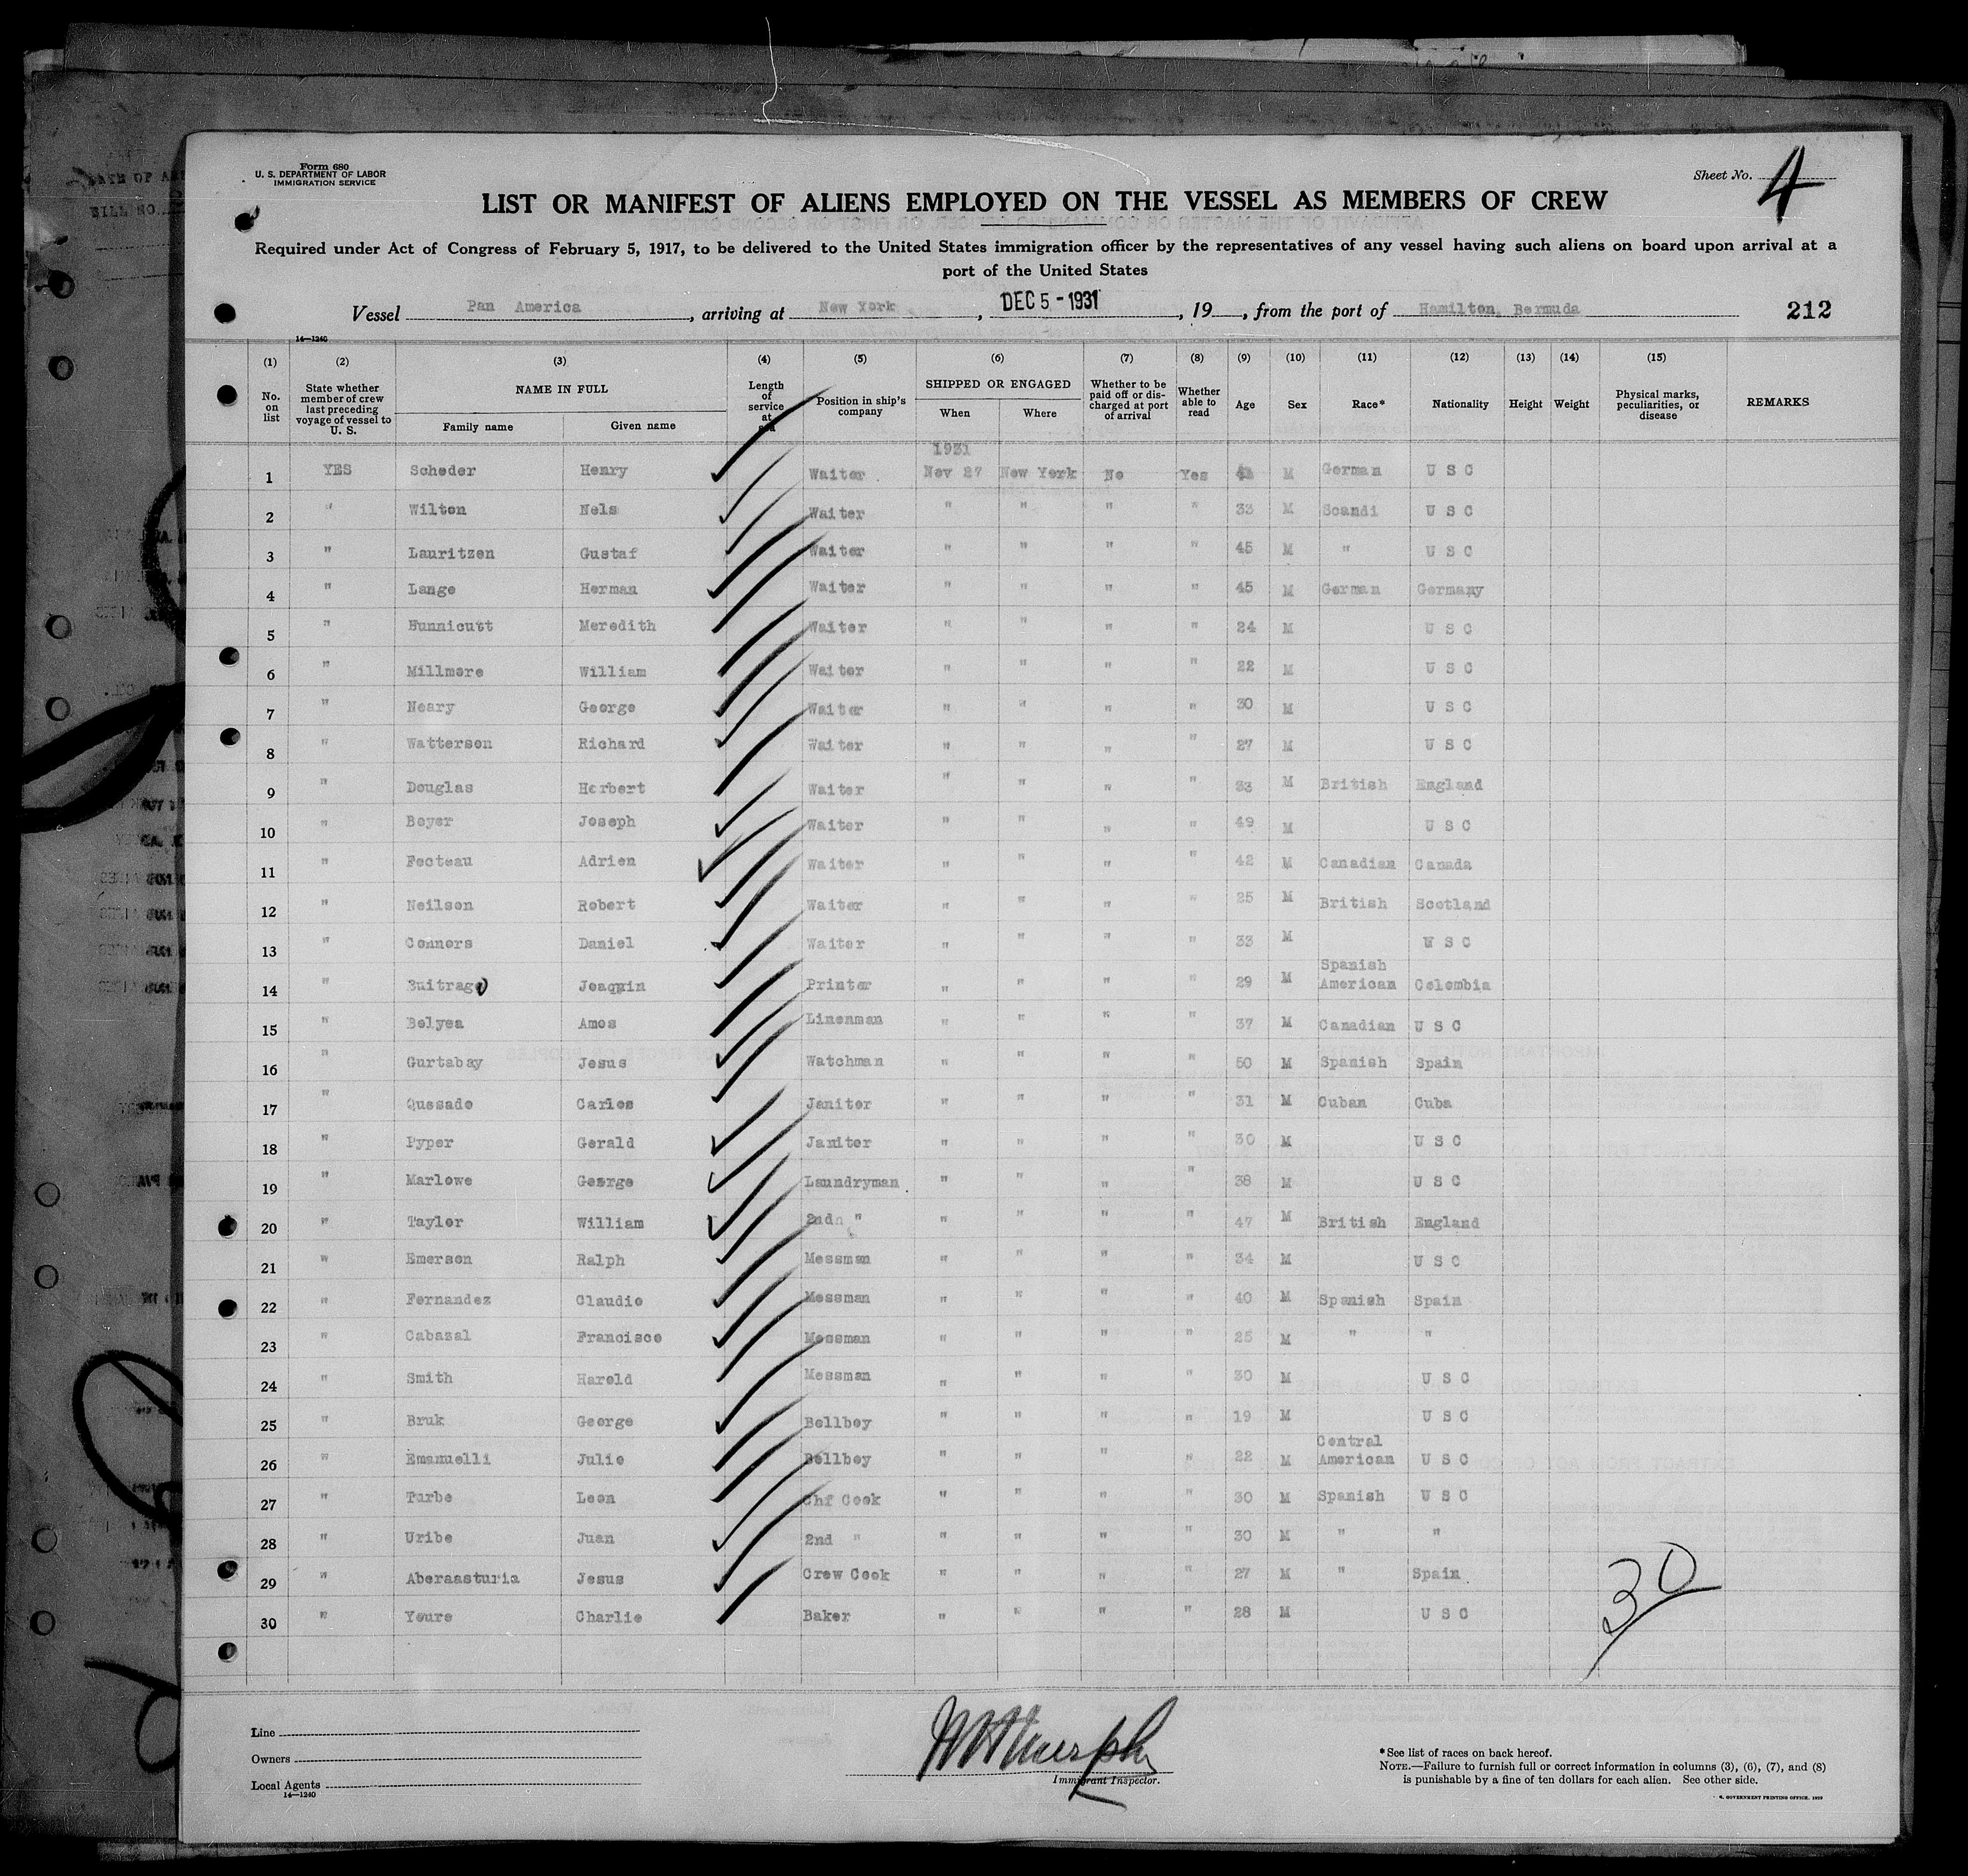 Form 680
U. S. DEPARTMENT OF LABOR
IMMIGRATION SERVICE
Sheet No. 4
LIST OR MANIFEST OF ALIENS EMPLOYED ON THE VESSEL AS MEMBERS OF CREW
Required under Act of Congress of February 5, 1917, to be delivered to the United States immigration officer by the representatives of any vessel having such aliens on board upon arrival at a
port of the United States
Vessel Pan America, arriving at New York, DEC 5 - 1931, 19, from the port of Hamilton, Bermuda 212
14—1240
(1) (2) (3) (4) (5) (6) (7) (8) (9) (10) (11) (12) (13) (14) (15)
No. on list State whether member of crew last preceding voyage of vessel to U. S. NAME IN FULL Family name Given name Length of service at sea Position in ship's company SHIPPED OR ENGAGED When Where Whether to be paid off or discharged at port of arrival Whether able to read Age Sex Race* Nationality Height Weight Physical marks, peculiarities, or disease REMARKS
1931
1 YES Scheder Henry Waiter Nov 27 New York No Yes M German U S C
2 " Wilton Nels Waiter " " " " 33 M Scandi U S C
3 " Lauritzen Gustaf Waiter " " " " 45 M " U S C
4 " Lange Herman Waiter " " " " 45 M German Germany
5 " Hunnicutt Meredith Waiter " " " " 24 M U S C
6 " Millmore William Waiter " " " " 22 M U S C
7 " Neary George Waiter " " " " 30 M U S C
8 " Watterson Richard Waiter " " " " 27 M U S C
9 " Douglas Herbert Waiter " " " " 33 M British England
10 " Beyer Joseph Waiter " " " " 49 M U S C
11 " Fecteau Adrien Waiter " " " " 42 M Canadian Canada
12 " Neilson Robert Waiter " " " " 25 M British Scotland
13 " Connors Daniel Waiter " " " " 33 M U S C
14 " Buitrago Joaquin Printer " " " " 29 M Spanish American Colombia
15 " Belyea Amos Linenman " " " " 37 M Canadian U S C
16 " Gurtabay Jesus Watchman " " " " 50 M Spanish Spain
17 " Quesado Carlos Janitor " " " " 31 M Cuban Cuba
18 " Pyper Gerald Janitor " " " " 30 M U S C
19 " Marlowe George Laundryman " " " " 38 M U S C
20 " Taylor William 2nd " " " " " 47 M British England
21 " Emerson Ralph Messman " " " " 34 M U S C
22 " Fernandez Claudio Messman " " " " 40 M Spanish Spain
23 " Cabazal Francisco Messman " " " " 25 M " "
24 " Smith Harold Messman " " " " 30 M U S C
25 " Bruk George Bellboy " " " " 19 M U S C
26 " Emanuelli Julio Bellboy " " " " 22 M Central American U S C
27 " Turbe Leon Chf Cook " " " " 30 M Spanish U S C
28 " Uribe Juan 2nd " " " " " 30 M " "
29 " Aberaasturia Jesus Crew Cook " " " " 27 M " Spain
30 " Youre Charlie Baker " " " " 28 M U S C
30
Line
Owners
Local Agents
14—1240
Immigrant Inspector.
*See list of races on back hereof.
NOTE.—Failure to furnish full or correct information in columns (3), (6), (7), and (8)
is punishable by a fine of ten dollars for each alien. See other side.
GOVERNMENT PRINTING OFFICE. 1929